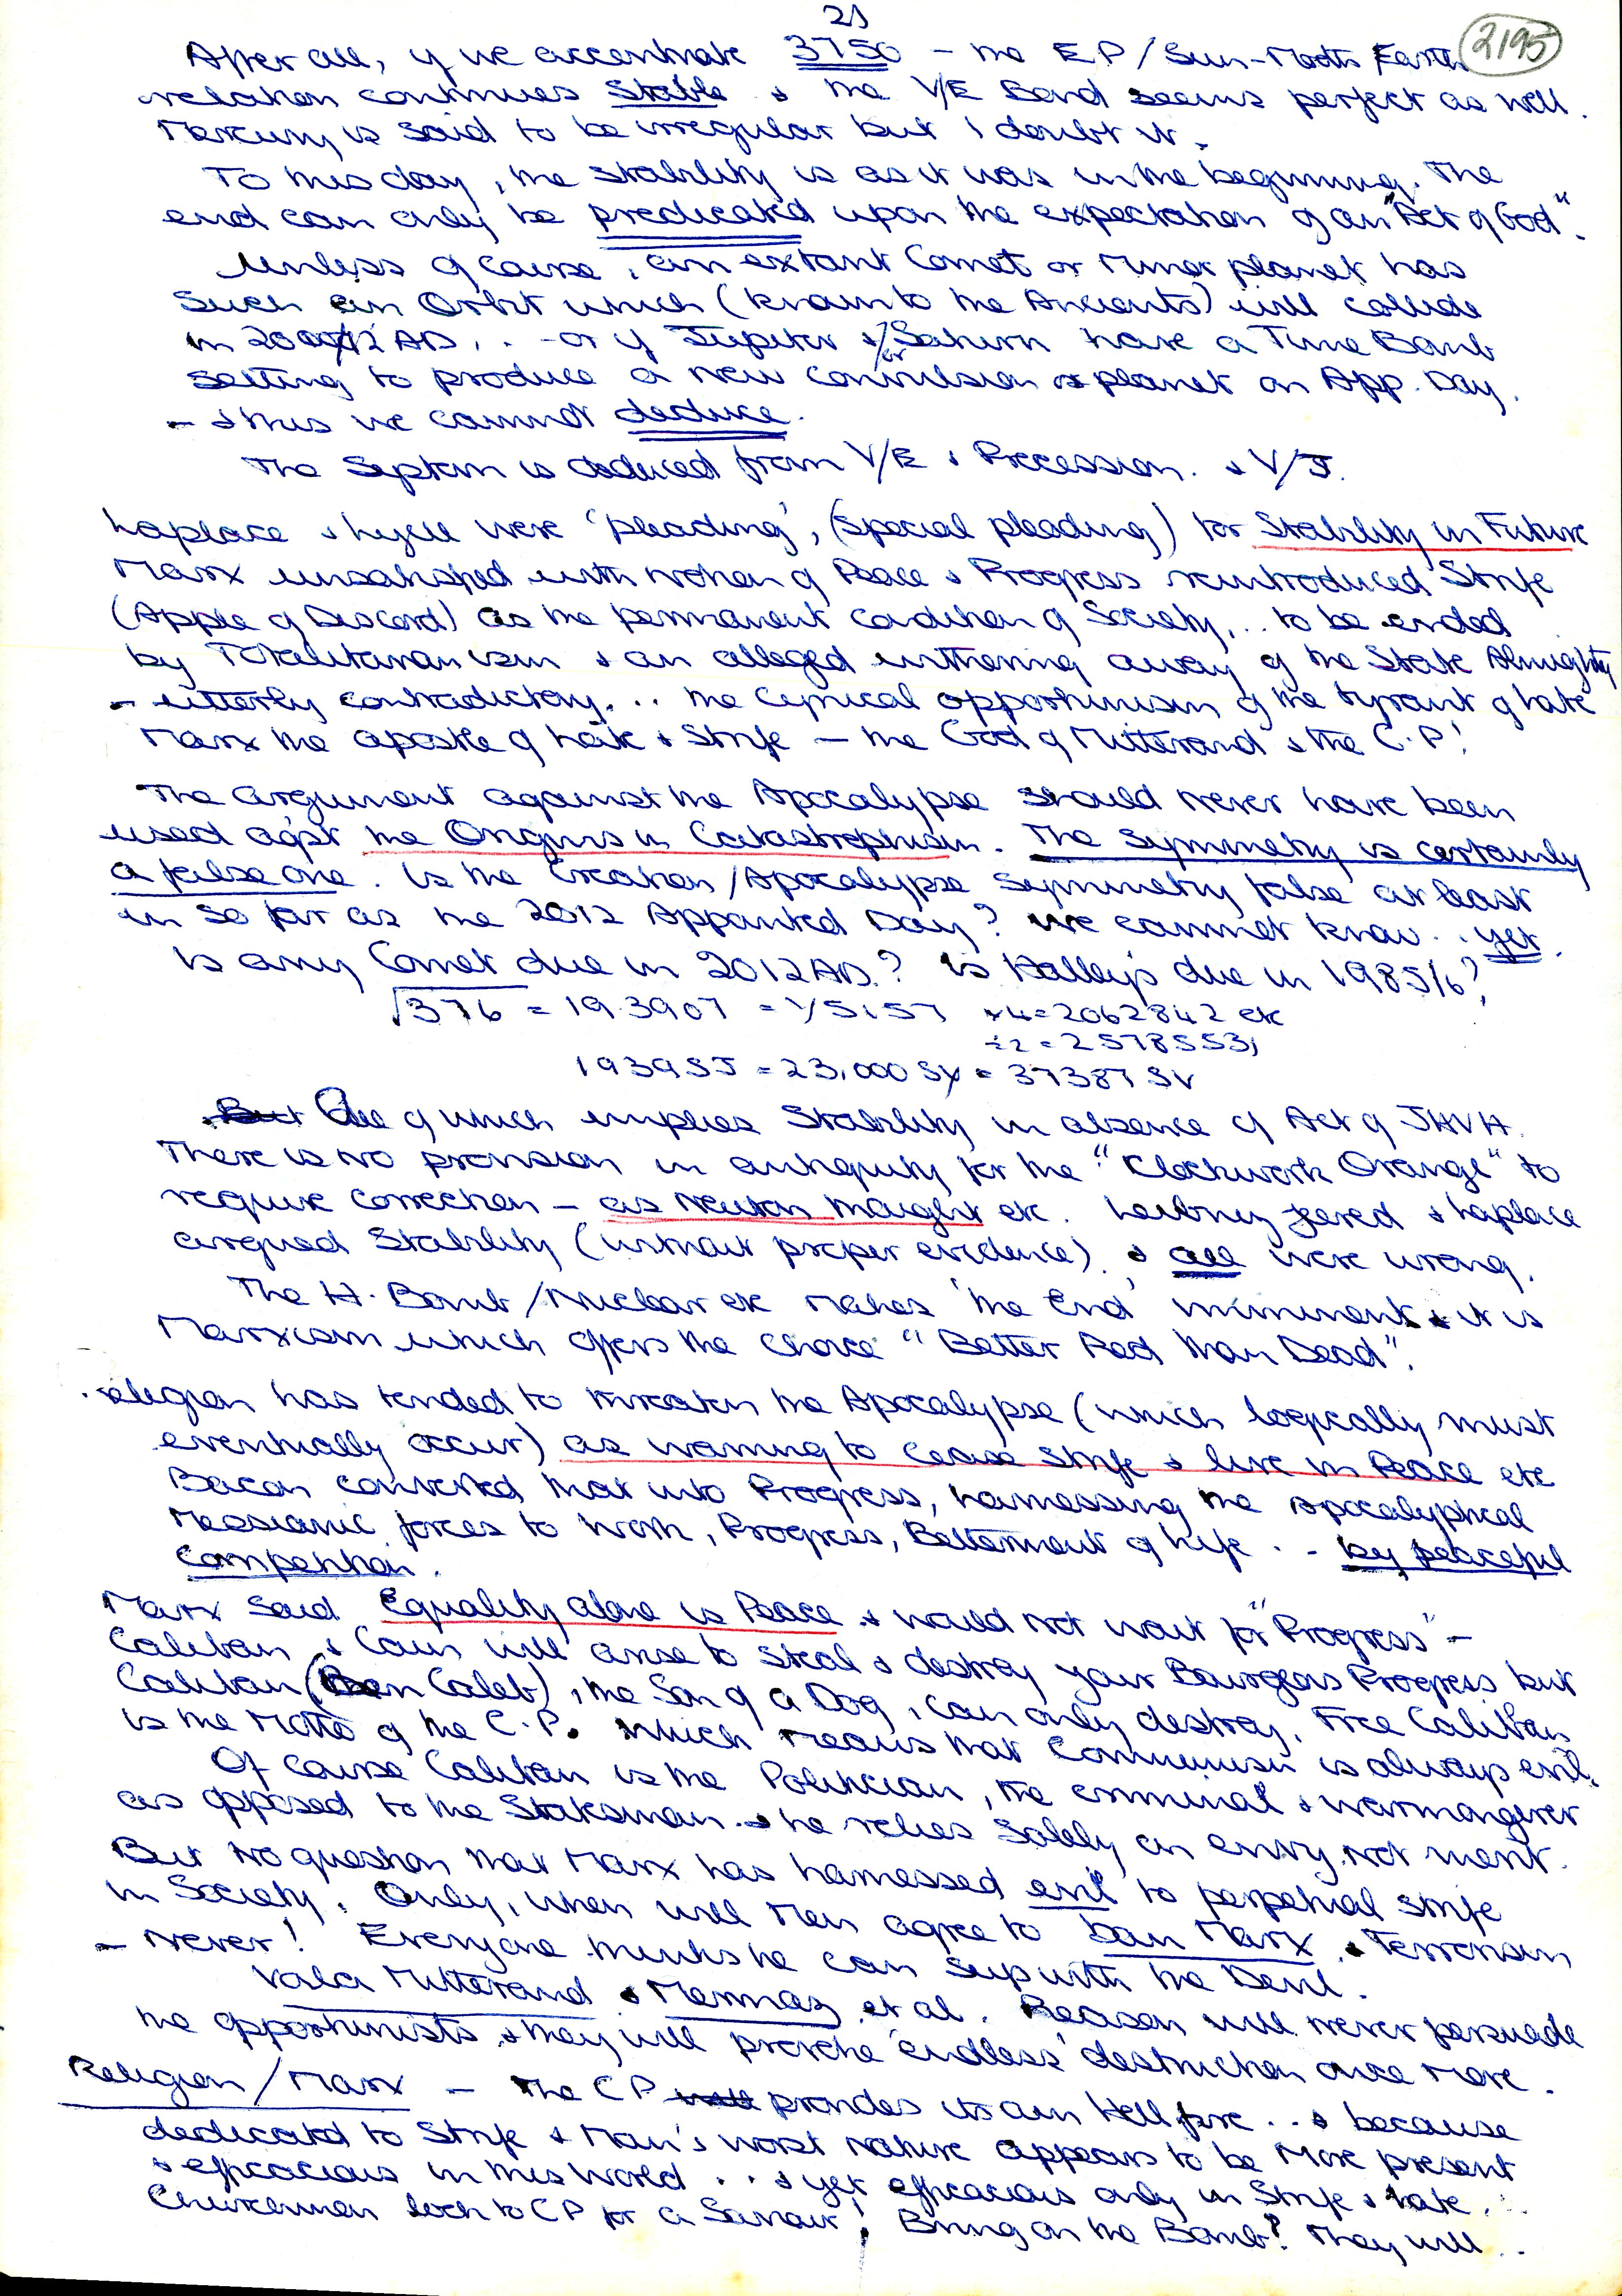 21
2195
After all, if we accentuate 3750 - the E.P/Sun-Moon Earth
relation continues Stable & the V/E Bond seems perfect as well.
Mercury is said to be irregular but I doubt it.
To this day, the stability is as it was in the beginning. The
end can only be predicated upon the expectation of an "Act of God".
Unless of course, an extant Comet or Minor planet has
such an Orbit which (known to the Ancients) will collide
in 2012 AD, . - or if Jupiter &/or Saturn have a Time Bomb
setting to produce a new convulsion or planet on App. Day.
- & this we cannot deduce.
The System is deduced from V/E & Precession. & V/J.
Laplace & Lyell were 'pleading', (special pleading) for Stability in Future
Marx unsatisfied with notion of Peace & Progress reintroduced Strife
(Apple of Discord) as the permanent condition of Society, .. to be ended
by Totalitarianism & an alleged withering away of the State Almighty
- utterly contradictory. .. the cynical opportunism of the tyrant of hate
Marx the apostle of hate & Strife - the God of Mitterand & the C.P!
The argument against the Apocalypse should never have been
used agst the Origins in Catastrophism. The symmetry is certainly
a false one. Is the Creation/Apocalypse symmetry false at least
in so far as the 2012 Appointed Day? We cannot know . . yet.
Is any Comet due in 2012 AD.? Is Halley's due in 1985/6?
√376 = 19.3907 = 1/5157 x4=2062842 etc
÷2 = 2578553,
1939SJ = 23,000 SY = 37387 SV
But All of which implies Stability in absence of Act of JHVH.
There is no provision in antiquity for the "Clockwork Orange" to
require correction - as Newton thought etc. Leibniz jeered & Laplace
argued Stability (without proper evidence) & all were wrong.
The H. Bomb/Nuclear etc makes 'the End' imminent & it is
Marxism which offers the choice "Better Red than Dead".
Religion has tended to threaten the Apocalypse (which logically must
eventually occur) as warning to cease strife & live in Peace etc
Bacon converted that into Progress, harnessing the Apocalyptical
Messianic forces to Work, Progress, Betterment of life . . - by peaceful
competition.
Marx said Equality alone is Peace & would not wait for "Progress" -
Caliban & Cain will arise to steal & destroy your Bourgeois Progress but
Caliban (Ben Caleb), the Son of a Dog, can only destroy. Free Caliban
is the Motto of the C.P. Which means that Communism is always evil.
Of course Caliban is the Politician, the criminal & warmongerer
as opposed to the Statesman. & he relies solely on envy, not merit.
But no question that Marx has harnessed evil to perpetual strife
in Society. Only, when will Men agree to ban Marx & Terrorism
- Never! Everyone thinks he can sup with the Devil.
Mitterand & et al. Reason will never persuade
the opportunists & they will provoke 'endless' destruction once more.
Religion/Marx - The CP provides its own Hellfire . . & because
dedicated to Strife & Man's worst nature appears to be more present
& efficacious in this World . . & yet efficacious only in Strife & hate.
Churchmen look to CP for a Saviour! Bring on the Bomb? They will . .